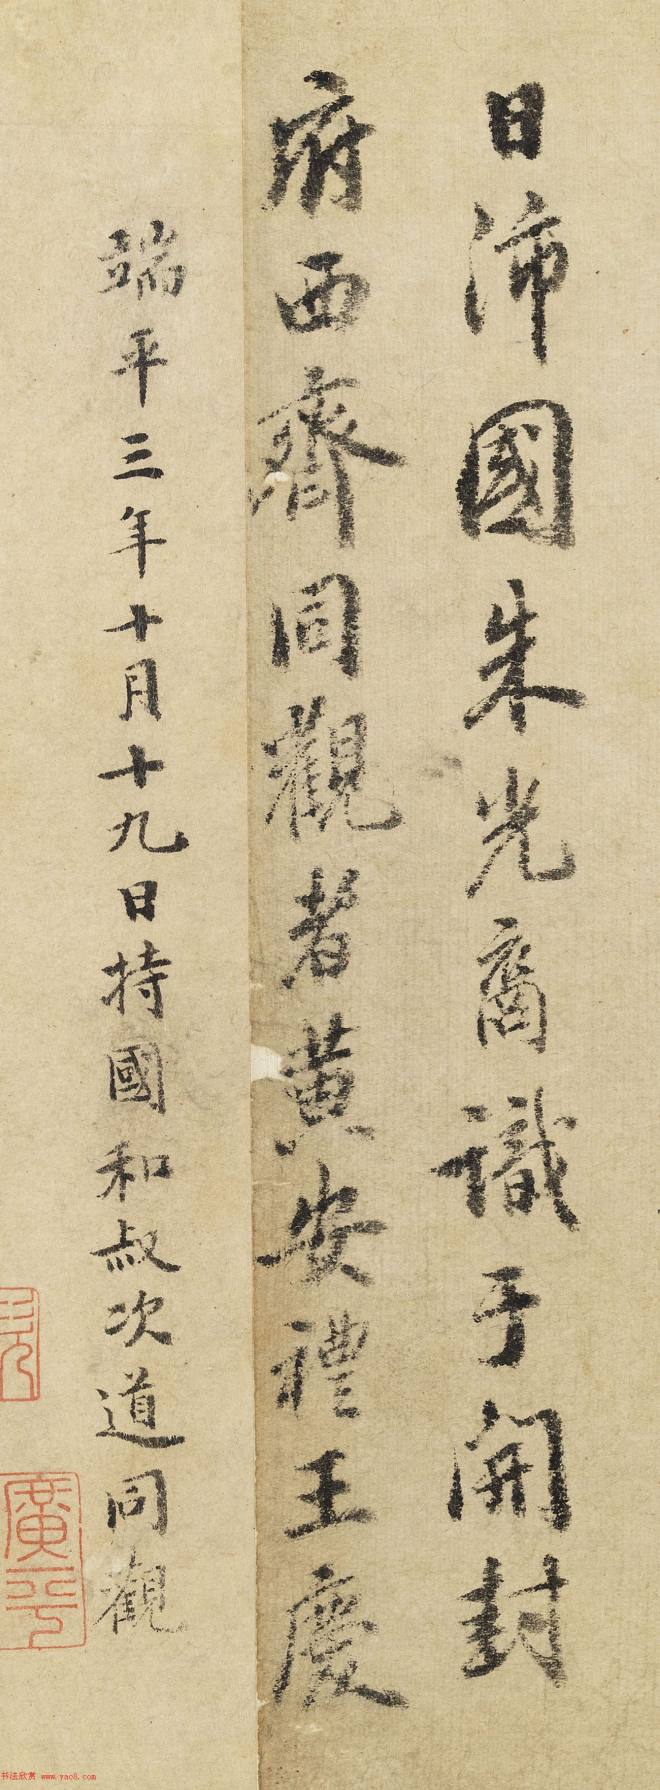 日沛國朱光裔識于開封
府西齋同觀者黃安禮王慶
端平三年十月十九日持國和叔次道同觀
廣平
书法欣赏 www.yac8.com